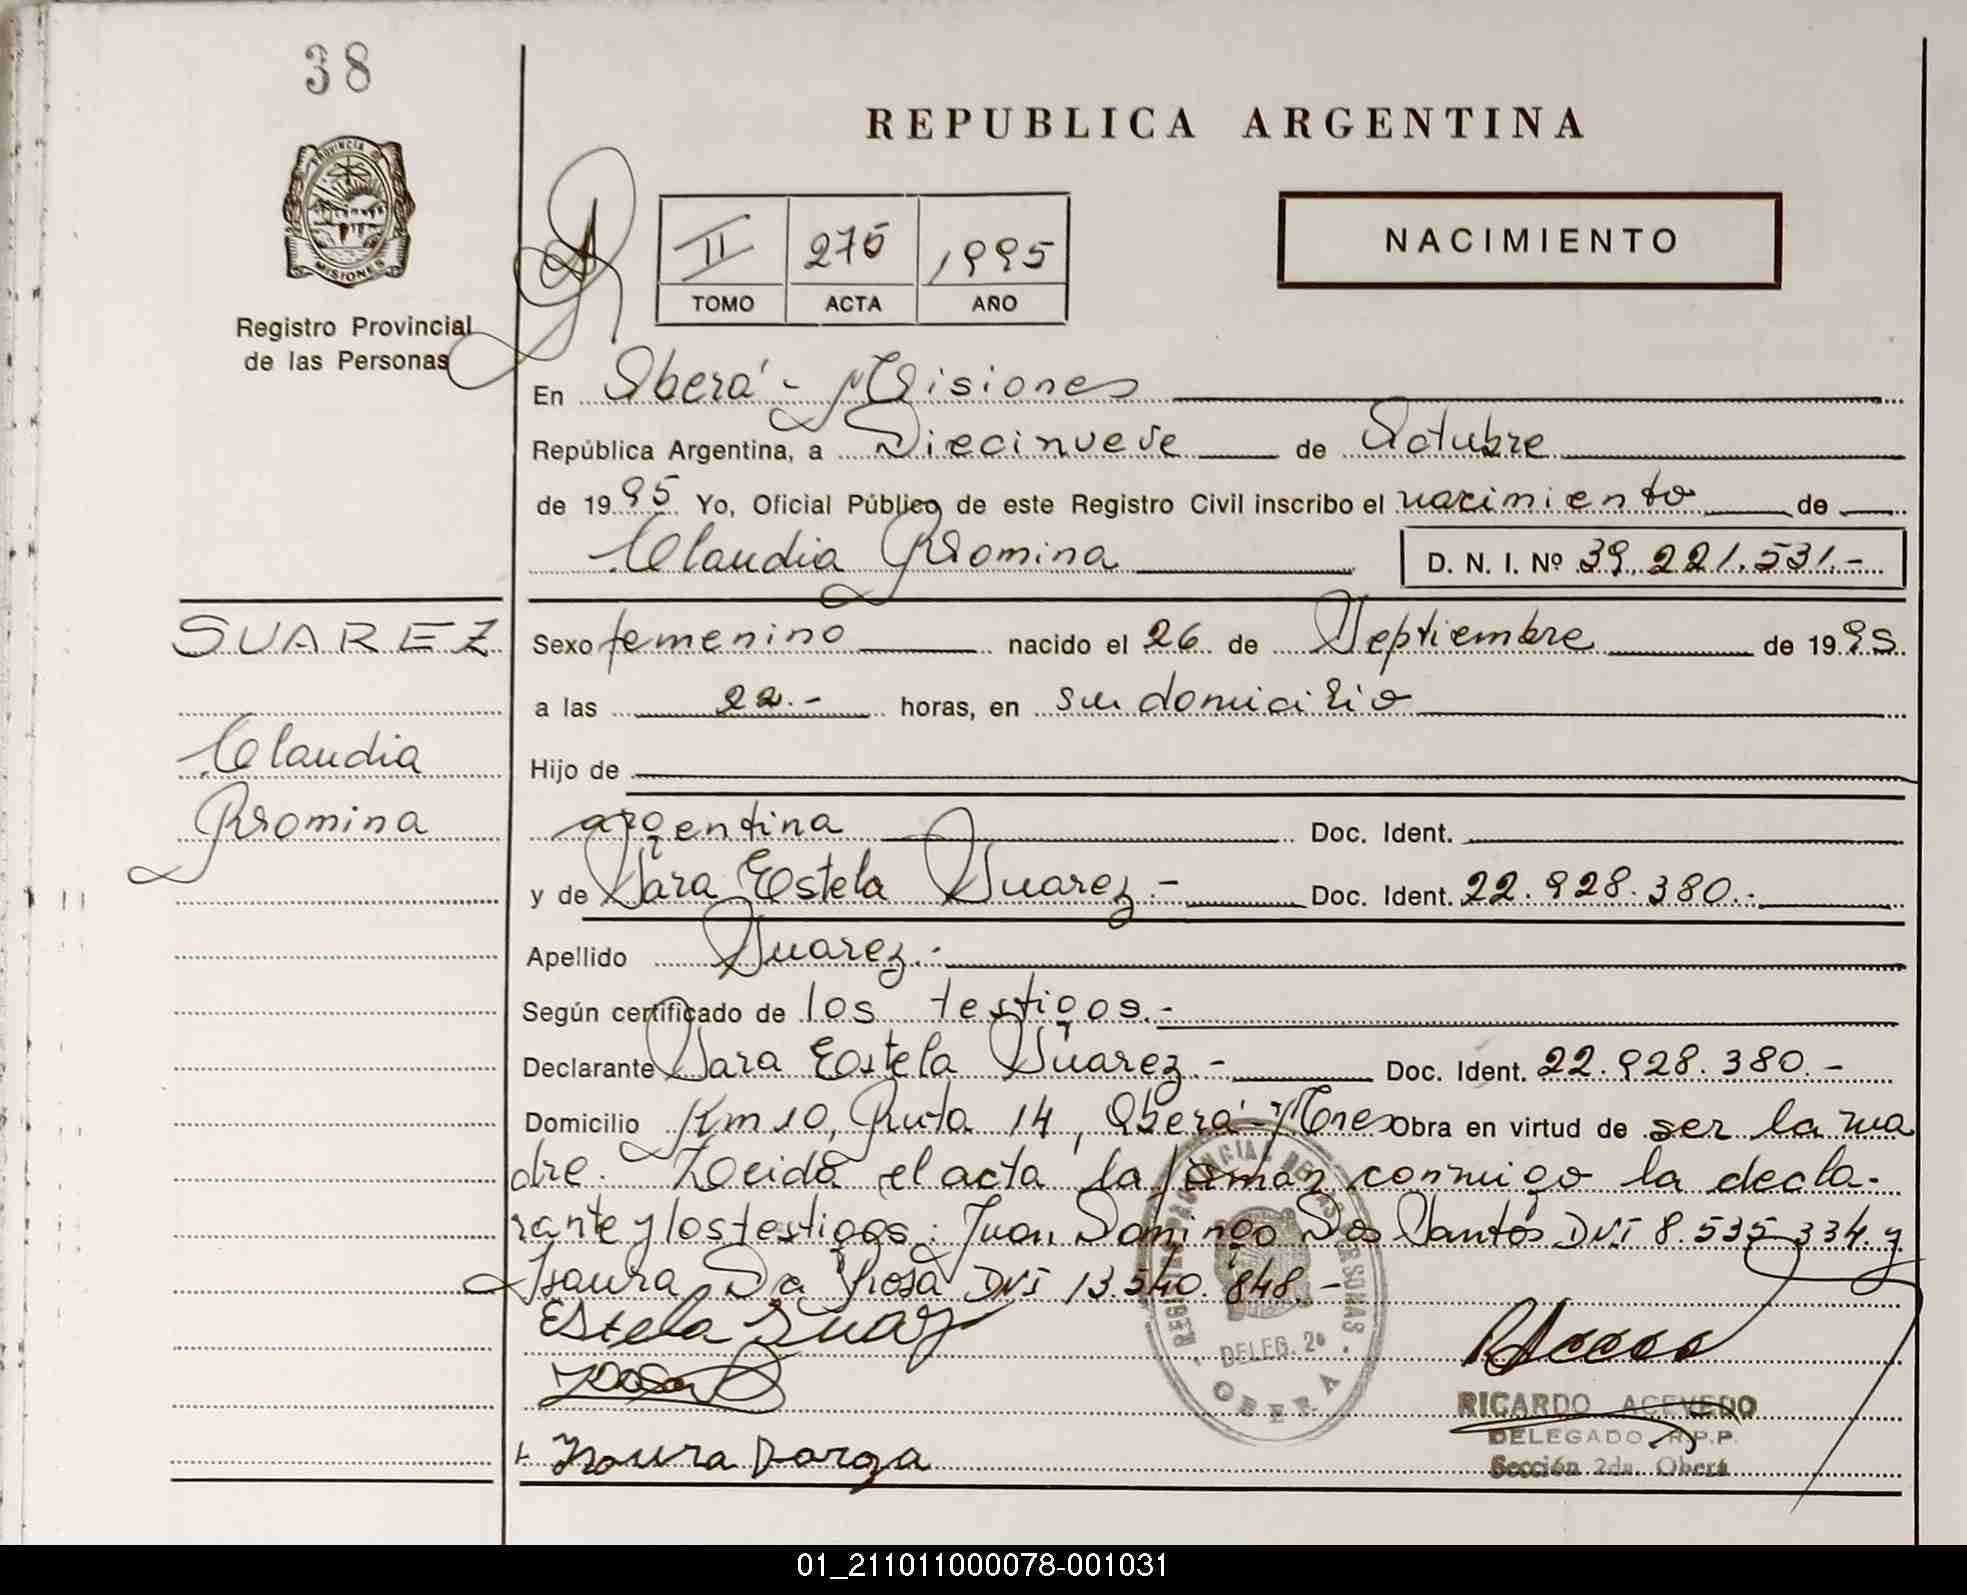 38
REPUBLICA ARGENTINA
PROVINCIA DE
MISIONES
Registro Provincial
de las Personas
II 275 1995
TOMO ACTA AÑO
NACIMIENTO
En Oberá - Misiones
República Argentina, a Diecinueve de Octubre
de 1995 Yo, Oficial Público de este Registro Civil inscribo el nacimiento de
Claudia Romina D. N. I. Nº 39.221.531.-
SUAREZ
Claudia
Romina
Sexo femenino nacido el 26 de Septiembre de 1995
a las 22.- horas, en su domicilio
Hijo de
argentina Doc. Ident.
y de Sara Estela Suarez.- Doc. Ident. 22.928.380.-
Apellido Suarez.-
Según certificado de los testigos.-
Declarante Sara Estela Suarez.- Doc. Ident. 22.928.380.-
Domicilio Km 10, Ruta 14, Oberá - Mnes Obra en virtud de ser la ma
dre. Leida el acta la firman conmigo la decla-
rante y los testigos: Juan Domingo Dos Santos DNI 8.535.334. y
Isaura Da Rosa DNI 13.540.848.-
Estela Suarez
REGISTRO PROVINCIAL DE LAS PERSONAS
DELEG. 2ª
OBERA
RICARDO ACEVEDO
DELEGADO R.P.P.
Sección 2da. Oberá
01_211011000078-001031